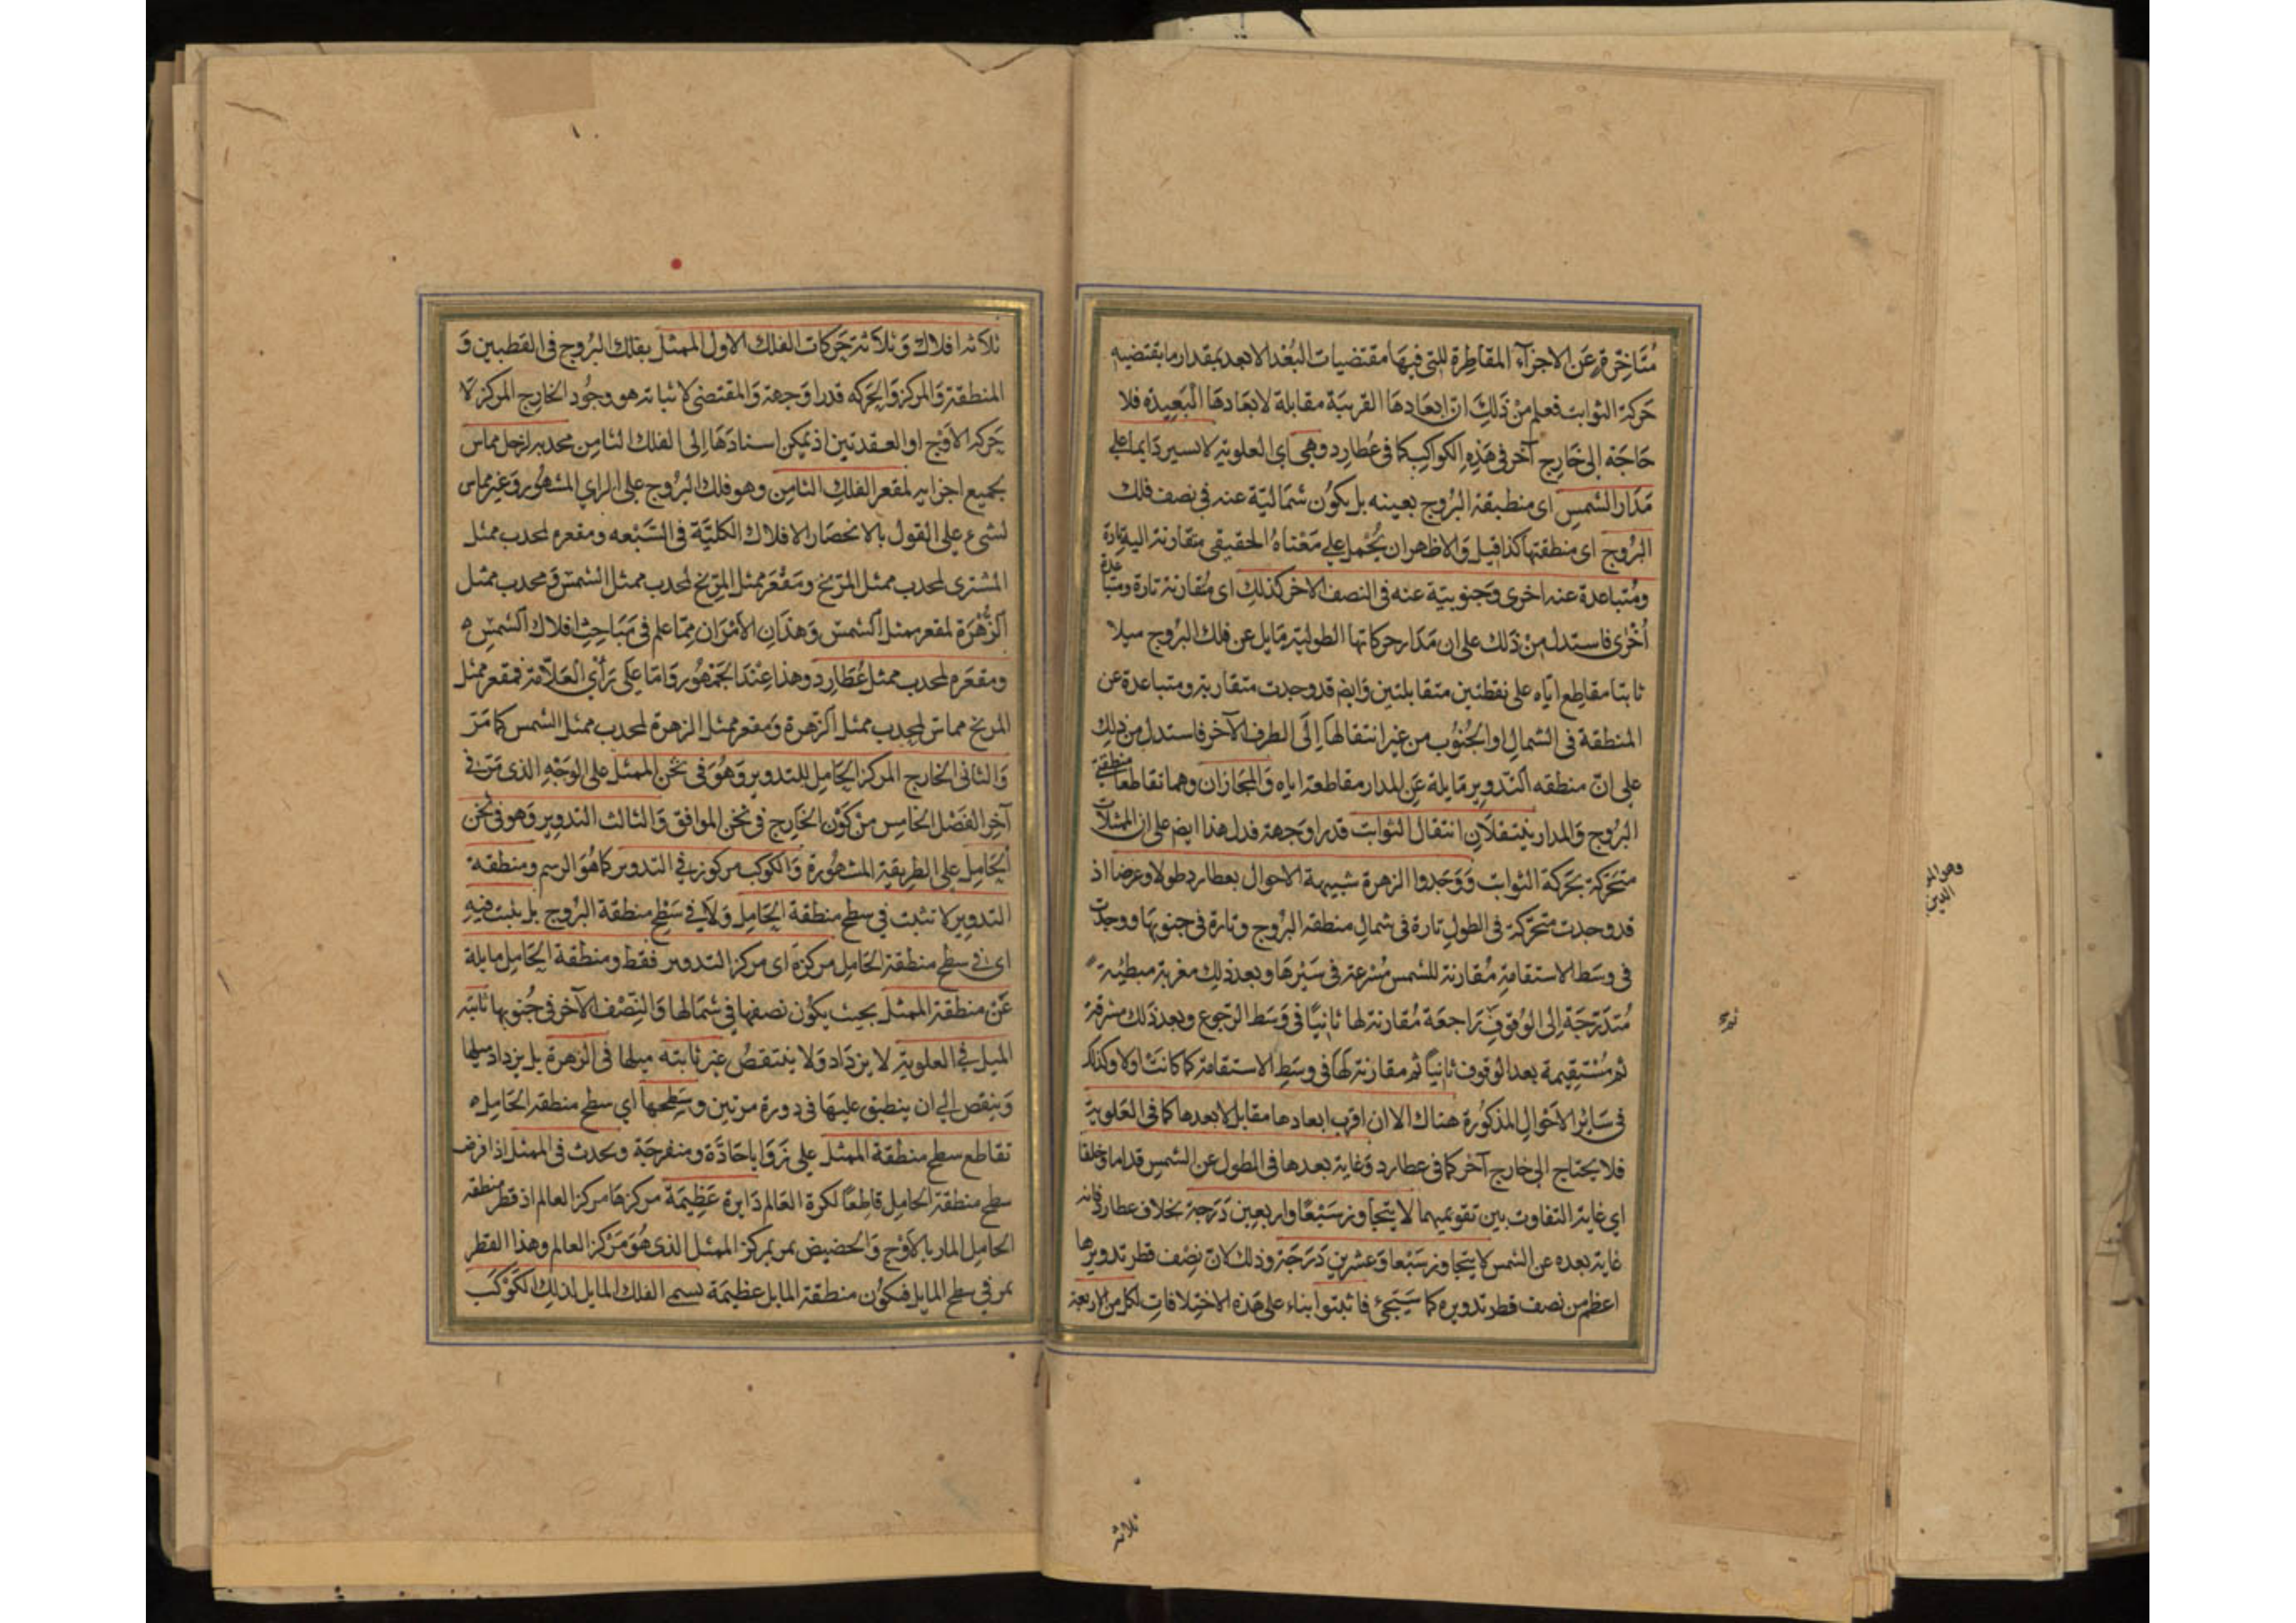 متاخرة عن الاجزآء المقاطرة للتى فيها مقتضيات البُعْد الابعد بمقدار ما يقتضيه
حركة الثوابت فعلم من ذلك ان ابعادها القريبة مقابلة لابعادها البعيدة فلا
حاجة الى خارج آخر فى هذه الكواكب كما فى عُطارد وهى اى العلوية لا تسير دايما على
مدار الشمس اى منطبقة البروج بعينه بل يكون شمالية عنه فى نصف فلك
البروج اى منطقتها كذا قيل والاظهر ان يُحْمل على مَعْناهُ الحقيقى متقارنة اليه تارة
ومُتباعدة عنه اخرى وجنوبيّة عنه فى النصف الاخر كذلك اى مُتقارنة تارة ومتباعدة
اُخْرٰى فاستدل من ذلك على ان مدار حركاتها الطولية مايل عن فلك البروج ميلا
ثابتا مقاطع ايّاه على نقطتين متقابلتين وايضا قد وجدت متقاربة ومتباعدة عن
المنطقة فى الشمال او الجنُوب من غير انتقالها الى الطرف الآخر فاستدل من ذلك
على انّ منطقه التّدوير مايلة عن المدار مقاطعة اياه والمجازان وهما تقاطعا منطقة
البروج والمدار ينتقلان انتقال الثوابت قدرا وجهة فدل هذا ايضا على ان الممثلات
متحركة بحركة الثوابت ووجدوا الزهرة شبيهة الاحوال بعطارد طولا وعرضا اذ
قد وجدت متحركة فى الطول تارة فى شمال منطقة البروج وتارة فى جنوبها ووجدت
فى وسَط الاستقامة مُقارنة للشمس مُسْرعة فى سَيْرها وبعد ذلك مغربة مبطئية
مُتدَرّجَة الى الوُقوف راجعَة مُقارنة لها ثانيًا فى وسَط الرّجوع وبعد ذلك مشرقة
ثم مُسْتقيمة بعد الوقوف ثانيًا ثم مقارنة لَها فى وسَط الاستقامة كما كانت اولا وكذلك
فى سَائر الاحْوال المذكُورة هناك الا ان اقرب ابعادها مقابل لابعدها كما فى العلوية
فلا يحتاج الى خارج آخر كما فى عطارد وغاية بعدها فى الطول عن الشمس قداما وخلفا
اى غاية التفاوت بين تقويميهما لا يتجاوز سَبْعًا واربعين دَرَجة بخلاف عطارد فانه
غاية بعده عن الشمس لا يتجاوز سَبْعا وعشرين دَرَجَة وذلك لان نِصْف قطر تدويرها
اعظم من نصف قطر تدويره كما سَيَجئ فاثبتوا بناء على هَذِه الاختلافات لكل من الاربعة
ثلاثة
ثلاثة افلاك وثلاثة حركات الفلك الاول الممثل بفلك البروج فى القطبين و
المنطقة والمركز والحَركه قدرا وجهة والمقتضى لاثباته هو وجُود الخارج المركز لا
حركة الاَوْج او العقدتين اذ يمكن اسنادَهَا الى الفلك الثامن محدبه لزحل مماس
بجميع اجزايه لمقعر الفلك الثامن وهو فلك البروج على الراي المشهُور وغير مماس
لشىء على القول بالانحصار الافلاك الكليَّة فى السَّبْعه ومقعره لمحدب ممثل
المشترى لمحدب ممثل المرّيخ ومقعر ممثل المرّيخ لمحدب ممثل الشمس ومحدب ممثل
الزُّهَرة لمقعر ممثل الشمس وهذان الامْرَان ممّا علم فى مَبَاحث افلاك الشمس
ومقعره لمحدب ممثل عُطارد وهذا عِنْد الجمْهُور وامّا على رَأى العلّامة فمقعر ممثل
المريخ مماس لمحدب ممثل الزهرة ومقعر ممثل الزهرة لمحدب ممثل الشمس كما مَرّ
والثانى الخارج المركز الحامل للتدوير وهُوَ فى ثخن الممثل على الوَجْه الذى مَرّ فى
آخر الفصْل الخامس من كَوْن الخارج فى ثخن الموافق والثالث التدوير وهو فى ثخن
الحامل على الطريقة المشهُورة والكوكب مركوز فى التدوير كما هُوَ الرسم ومنطقة
التدوير لا تثبت فى سطح منطقة الحامل ولا فى سَطْح منطقة البروج بل يثبت فيه
اى فى سطح منطقة الحَامل مركزه اى مركز التدوير فقط ومنطقة الحَامل مايلة
عَنْ منطقة الممثل بحيث يكُون نصفها فى شمالها والنّصْف الآخر فى جُنوبها ثابتة
الميل فى العلوية لا يزداد ولا ينتقصُ غير ثابته ميلها فى الزهرة بل يزداد ميلها
وينقص الى ان ينطبق عليها فى دورة مرتين وسَطحها اى سطح منطقة الحامل
تقاطع سطح منطقة الممثل على زوايا حادّة ومنفرجَة ويحدث فى الممثل اذا فرض
سطح منطقة الحَامل قاطعًا لكرة العَالم دَايرة عظيمَة مركزها مركز العالم اذ قطر منطقة
الحامل المار بالاَوْج والحضيض يمر بمركز الممثل الذى هُوَ مَرْكز العالم وهذا القطر
يمر فى سطح المايل فيكُون منطقة المايل عظيمَة تسمى الفلك المايل لذلك الكَوْكَب